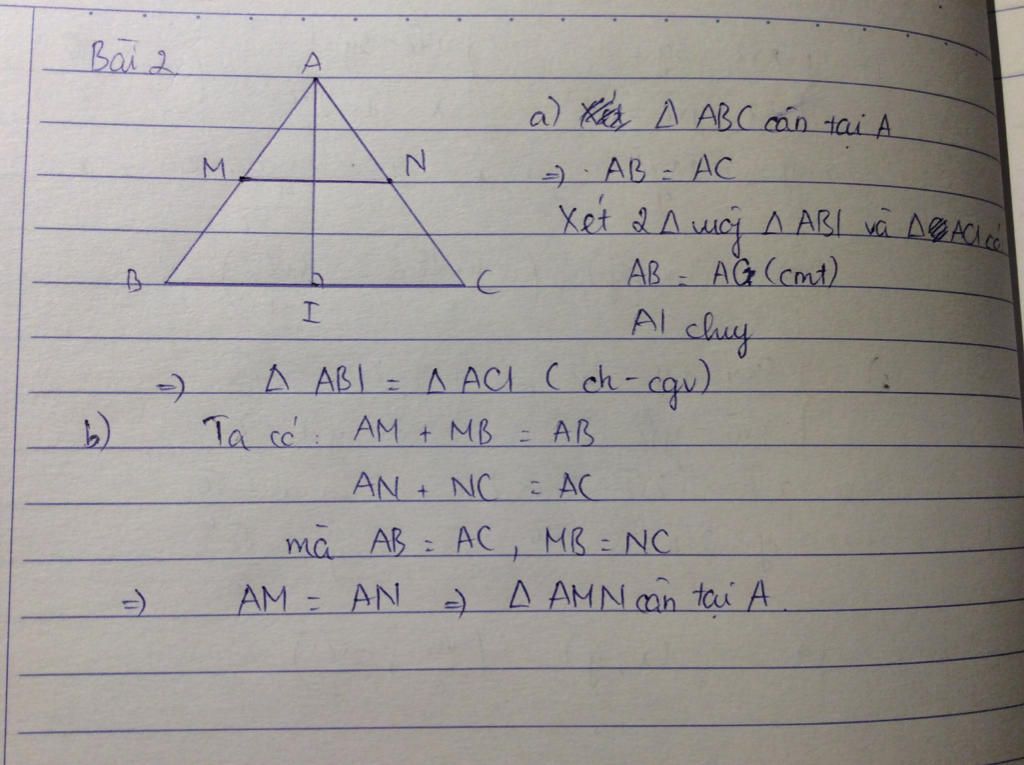 Bài 2
A
M
N
B
C
I
a) Δ ABC cân tại A
=> AB = AC
Xét 2 Δ vuông Δ ABI và Δ ACI có
AB = AC (cmt)
AI chug
=> Δ ABI = Δ ACI ( ch - cgv)
b) Ta có : AM + MB = AB
AN + NC = AC
mà AB = AC , MB = NC
=> AM = AN => Δ AMN cân tại A.